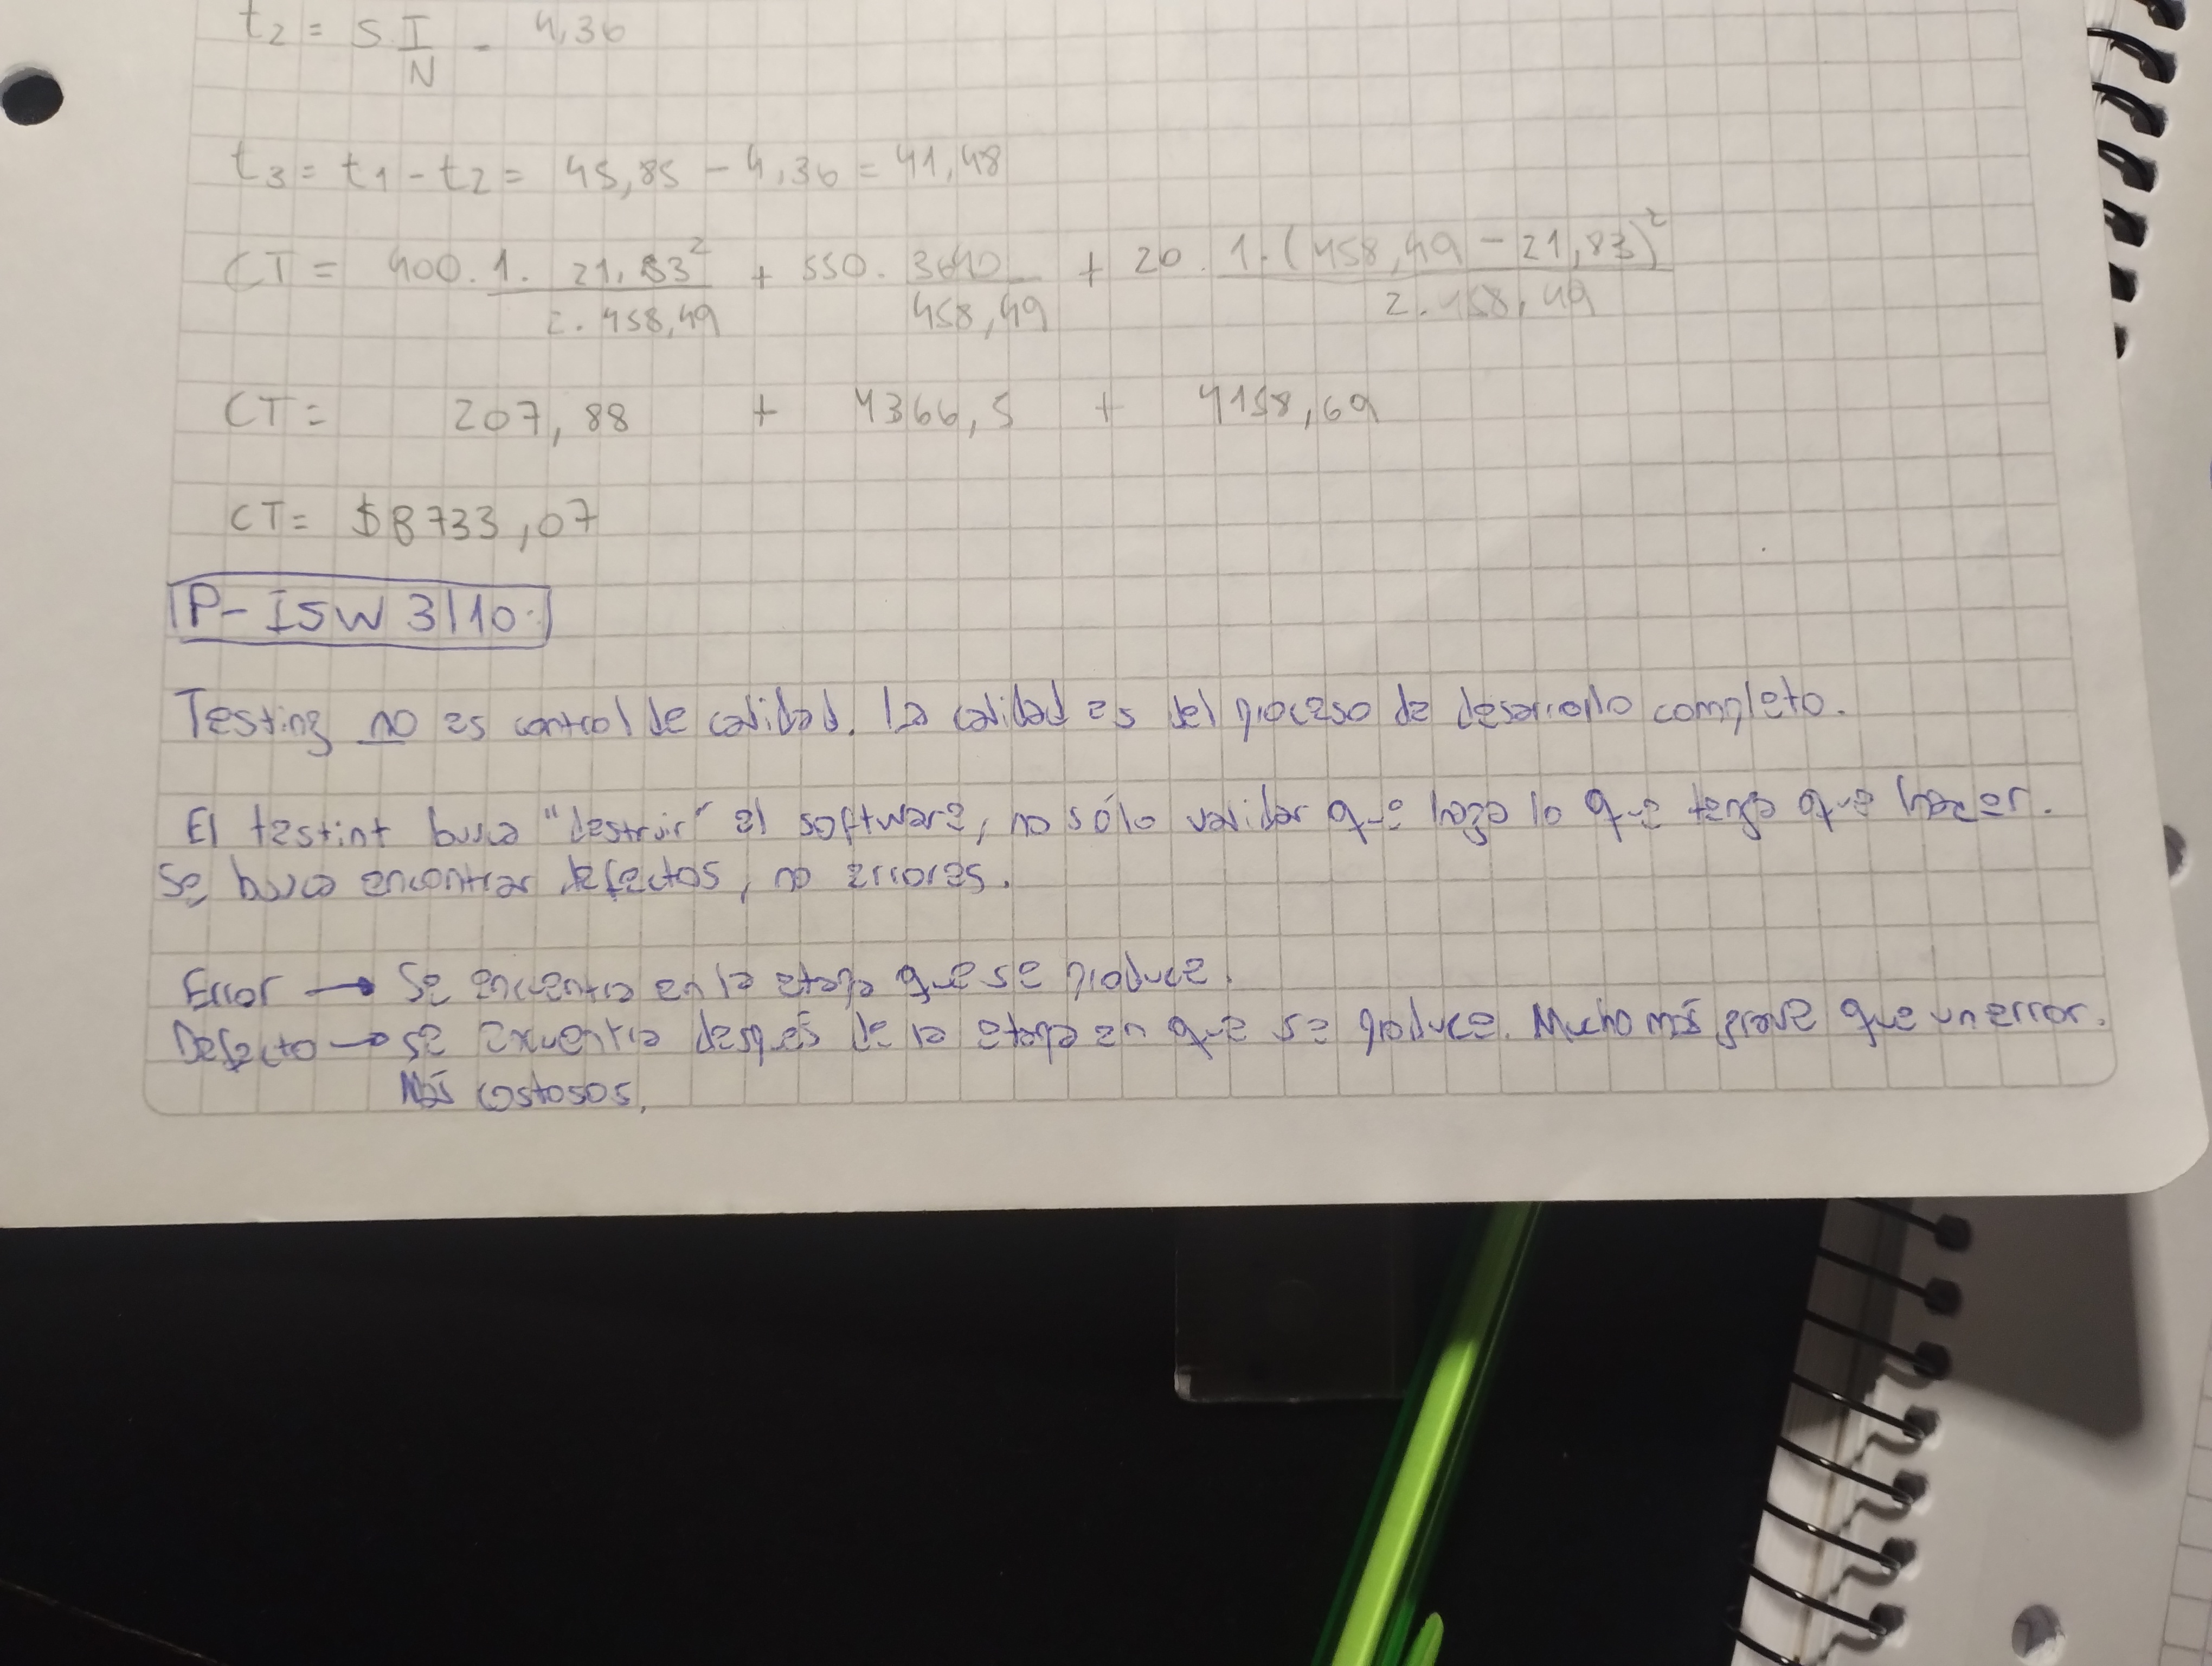 t2 = S I/N - 4,36
t3 = t1 - t2 = 45,85 - 4,36 = 41,48
CT = 400 . 1 . 21,83² / 2 . 458,49 + 550 . 3640 / 458,49 + 20 . 1 . (458,49 - 21,83)² / 2 . 458,49
CT = 207,88 + 4366,5 + 4158,69
CT = $8733,07
P-ISW 3/10.
Testing no es control de calidad. La calidad es del proceso de desarrollo completo.
El testint busca "destruir" el software, no sólo validar que haga lo que tenga que hacer.
Se busca encontrar defectos, no errores.
Error → Se encuentra en la etapa que se produce.
Defecto → se encuentra después de la etapa en que se produce. Mucho más grave que un error.
Más costosos.